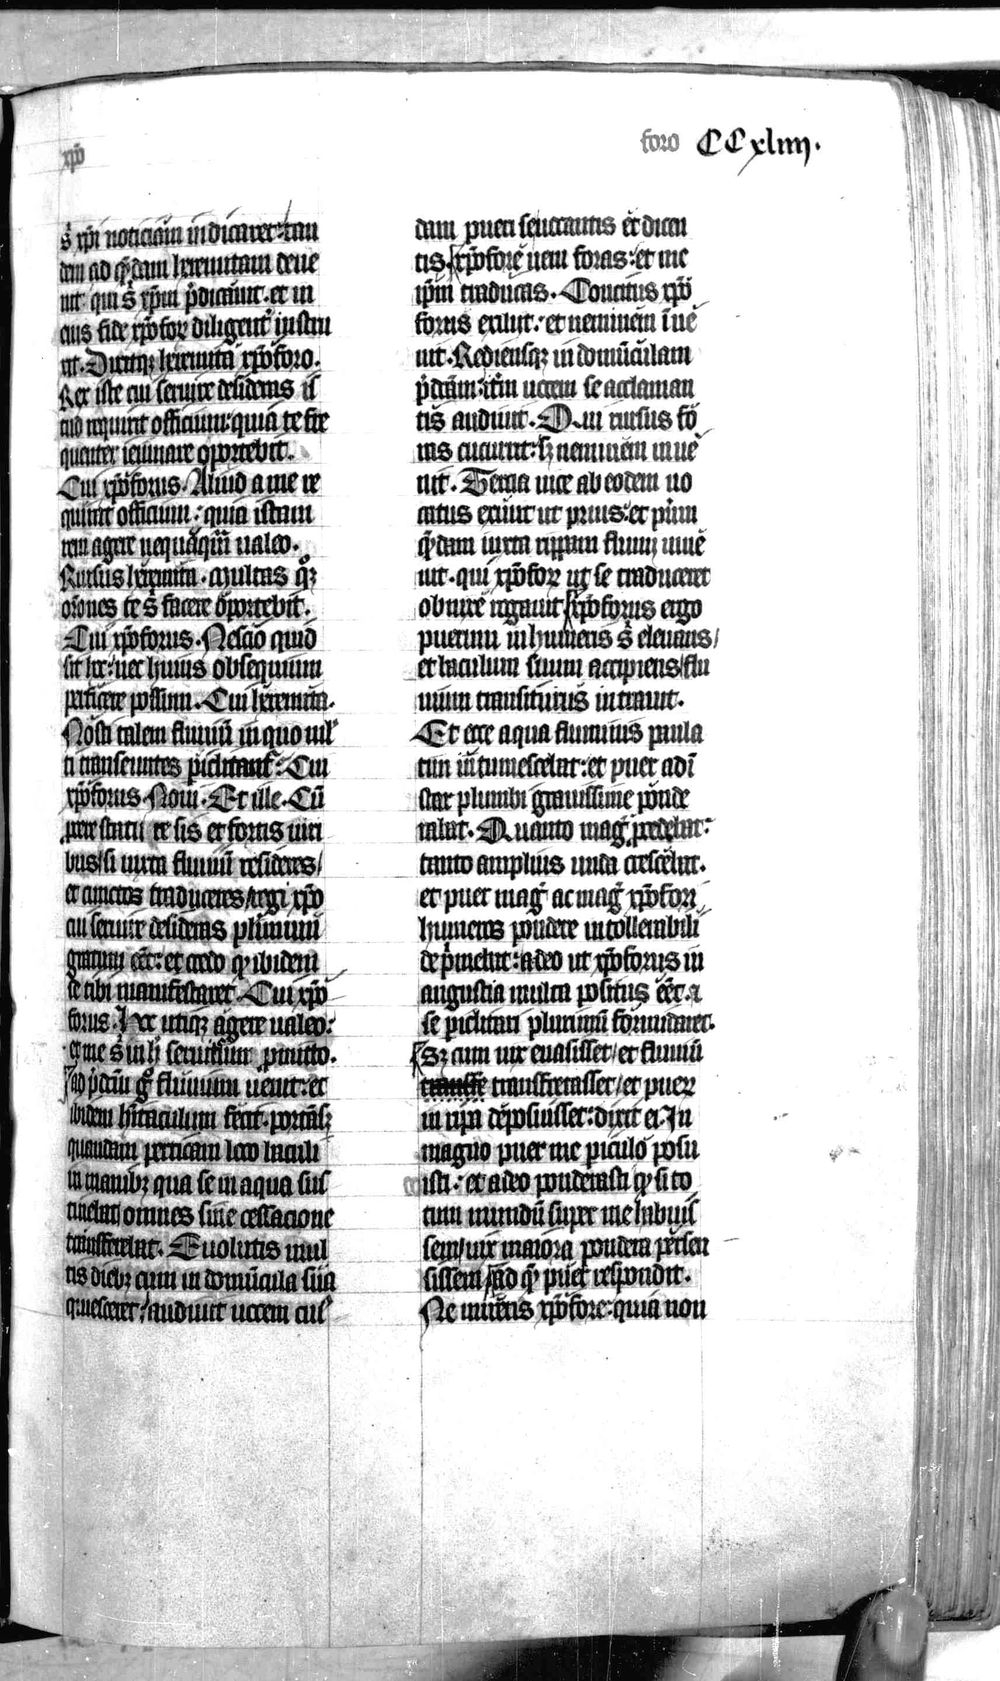 xp̄o
foro CCxliiij.
s̉ xp̄i noticiā in dicaret: tan
dem ad q̄dam heremitam deue
nit: qui s̉ xp̄m p̄dicauit. et in
eius fide xp̄oforū diligent̉ instru
xit. Dixitqȝ heremita xp̄oforo.
Rex iste cui seruire desideras is̄
tud requirit officium: quia te fre
quenter ieiunare oportebit.
Cui xp̄oforus. Aliud a me re
quirat officium: quia istam
rem agere nequāq̄m ualeo.
Rursus heremita. Multas qͦqȝ
or̄ones te s̉ facere oportebit.
Cui xp̄oforus. Nescio quid
sit hec: nec huius obsequium
perficere possum. Cui heremita.
Nosti talem fluuiū in quo ml̉
ti transeuntes p̄iclitant̉: Cui
xp̄oforus. Noui. Et ille. Cū
procere statu re sis et fortis uiri
bus/ si iuxta fluuiū resideres/
et cunctos traduceres/ regi xp̄o
cui seruire desideras plurimum
gratum eēt: et credo qȝ ibidem
se tibi manifestaret. Cui xp̄o
forus. Hoc utiqȝ agere ualeo:
et me s̉ in h̉ seruiturum promitto.
ad p̄dcm̄ gͦ fluuium uenit: et
ibidem hītaculum fecit. portāsqȝ
quandam perticam loco baculi
in manibȝ qua se in aqua sus
tinebat/ omnes sine cessacione
transferebat. Euolutis mul
tis diebȝ cum in domūcula sua
quiesceret/ audiuit uocem cuiꝰ
dam pueri se uocantis et̄ dicen
tis. xp̄ofore ueni foras: et me
ip̄m traducas. Concitus xp̄o
forus exiluit: et neminem īue
nit. Rediensqȝ in domūculam
p̄dcam: itm̄ uocem se acclaman
tis audiuit. Qui rursus fo
ras cucurrit: sȝ neminem inue
nit. Tercia uice ab eodem uo
catus exiuit ut prius: et p̄um
q̄dam iuxta rippam fluuij inue
nit. qui xp̄oforū ut se traduceret
obnixe rogauit. xp̄oforus ergo
puerum in humeris s̉ eleuans/
et baculum suum accipiens/ flu
uium transiturus intrauit.
Et ecce aqua fluminis paula
tim in̄tumescebat: et puer ad ī
star plumbi grauissime ponde
rabat. Quanto magꝰ procedebat:
tanto amplius unda crescebat.
et puer magꝰ ac magꝰ xp̄ofori
humeros pondere intollerabili
deprimebat: adeo ut xp̄oforus in
angustia multa positus eēt. &
se p̄iclitari plurimū formidaret.
Sȝ cum uix euasisset/ et fluuiū
transfe transfretasset/ et puerū
in ripa deposuisset: dixit ei. In
magno puer me p̄iculo posu
isti: et adeo ponderasti qȝ si to
tum mundū super me habuis̄
sem/ uix maiora pondera persen
sissem. ad qȝ puer respondit.
Ne mireris xp̄ofore: quia non